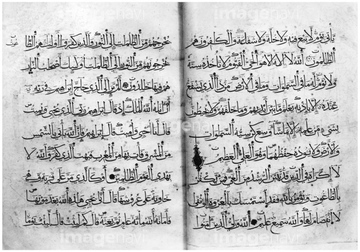 يأتي يوم لا بيع فيه ولا خلة ولا شفاعة والكافرون هم
الظالمون الله لا إله إلا هو الحي القيوم لا تأخذه سنة
ولا نوم له ما في السموات وما في الأرض من ذا الذي يشفع
عنده إلا بإذنه يعلم ما بين أيديهم وما خلفهم ولا يحيطون
بشيء من علمه إلا بما شاء وسع كرسيه السموات
والأرض ولا يؤده حفظهما وهو العلي العظيم
لا إكراه في الدين قد تبين الرشد من الغي فمن يكفر
بالطاغوت ويؤمن بالله فقد استمسك بالعروة الوثقى
لا انفصام لها والله سميع عليم الله ولي الذين آمنوا
يخرجهم من الظلمات إلى النور والذين كفروا أولياؤهم الطاغوت
يخرجونهم من النور إلى الظلمات أولئك أصحاب النار
هم فيها خالدون ألم تر إلى الذي حاج إبراهيم في ربه
أن آتاه الله الملك إذ قال إبراهيم ربي الذي يحيي ويميت
قال أنا أحيي وأميت قال إبراهيم فإن الله يأتي بالشمس
من المشرق فأت بها من المغرب فبهت الذي كفر والله لا
يهدي القوم الظالمين أو كالذي مر على قرية وهي
خاوية على عروشها قال أنى يحيي هذه الله بعد موتها
فأماته الله مائة عام ثم بعثه قال كم لبثت قال لبثت يوما